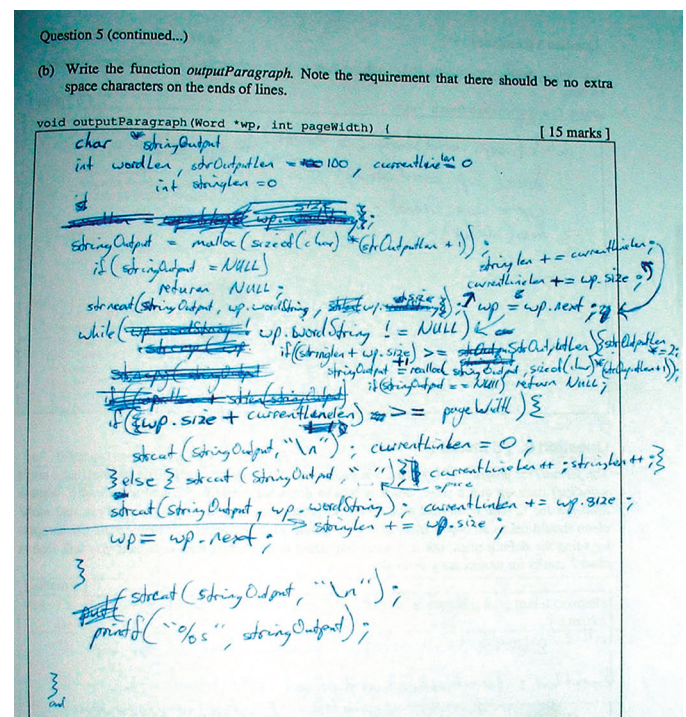 Question 5 (continued...)
(b) Write the function outputParagraph. Note the requirement that there should be no extra
space characters on the ends of lines.
void outputParagraph(Word *wp, int pageWidth) {
[ 15 marks ]
char *stringOutput
int wordLen, strOutputLen = 100, currentlinelen = 0
int stringlen = 0
stringOutput = malloc(sizeof(char) *(strOutputLen + 1));
stringlen += currentlinelen;
if (stringOutput = NULL)
currentlinelen += wp.size;
return NULL;
strncat(stringOutput, wp.wordString,
wp = wp.next;
while( wp.wordString != NULL) {
if(stringlen + wp.size) >=
stringOutput = realloc(stringOutput, sizeof(char)*(strOutputlen+1));
if(stringOutput == NULL) return NULL;
if(wp.size + currentlinelen) >= pageWidth ) {
strcat (stringOutput, "\n"); currentlinelen = 0;
}else { strcat (stringOutput, " "); currentlinelen++; stringlen++;}
space
strcat(stringOutput, wp.wordString); currentlinelen += wp.size;
stringlen += wp.size;
wp = wp.next;
}
strcat(stringOutput, "\n");
printf("%s", stringOutput);
}